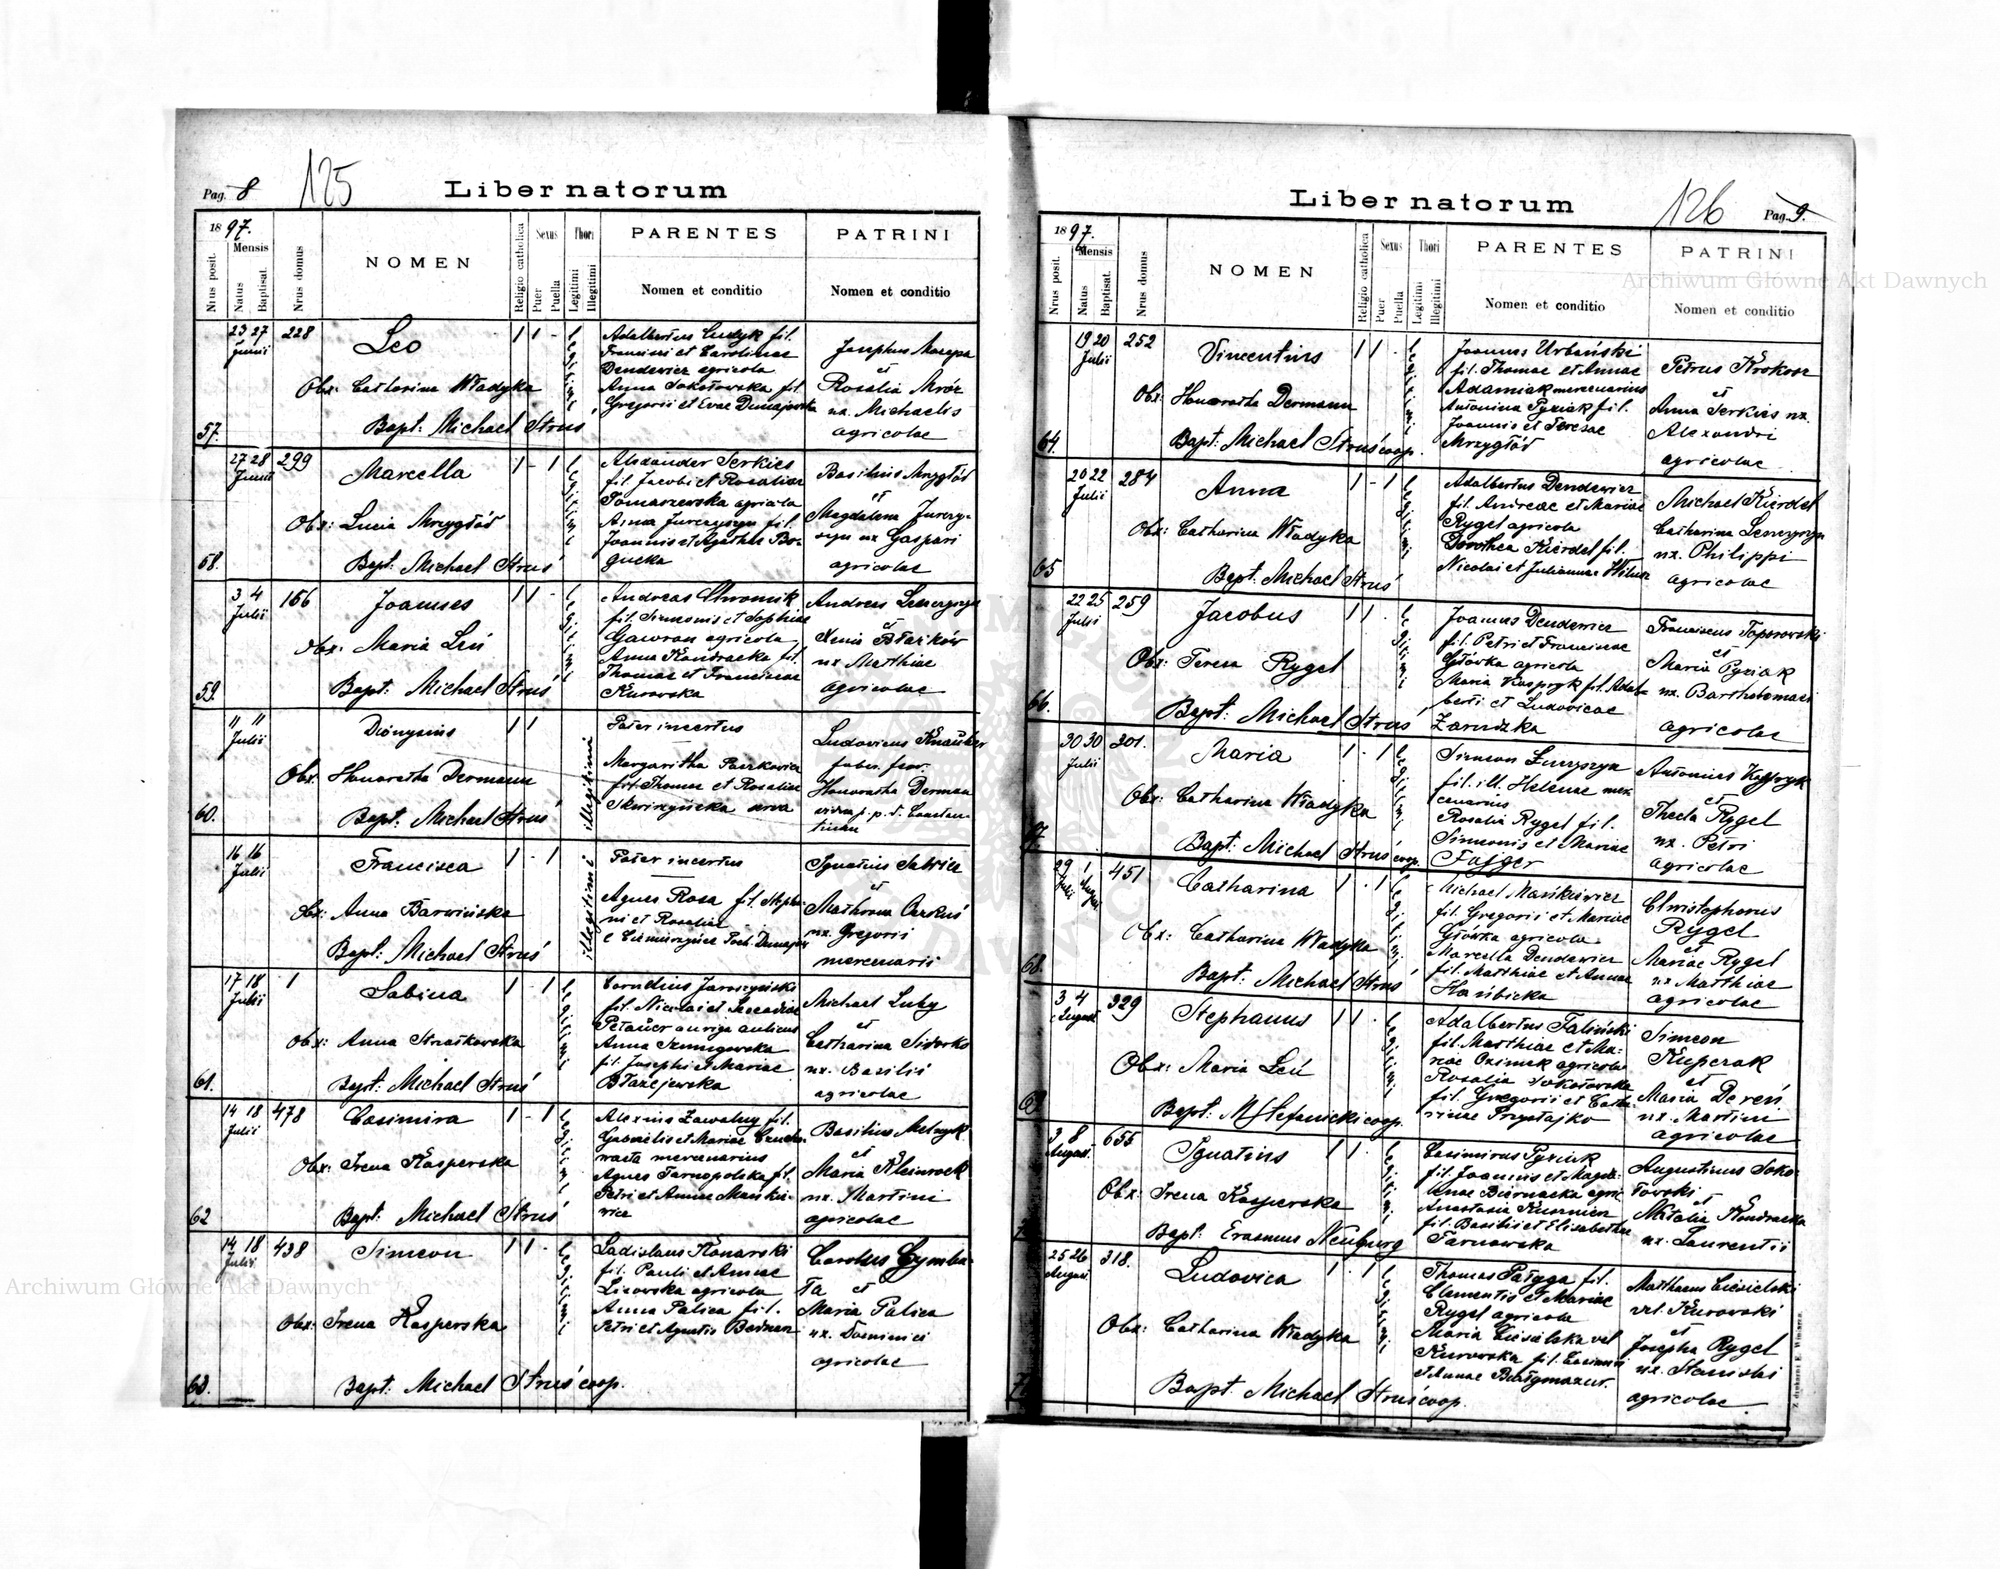 Pag. 8
125
Liber natorum
1897.
Mensis
Nrus posit.
Natus
Baptisat.
Nrus domus
NOMEN
Religio catholica
Sexus
Puer
Puella
Thori
Legitimi
Illegitimi
PARENTES
Nomen et conditio
PATRINI
Nomen et conditio
57.
23 27
Junii
228
Leo
Obx: Catharina Władyka
Bapt: Michael Struś
Legitimi
Francisci et Carolinae
Dendewicz agricola
Anna Sokołowska fil.
Gregorii et Evae Dumajewska
Josephus Mazepa
et
Rosalia Mróz
ux. Michaelis
agricolae
58.
27 28
Junii
299
Marcella
Obx: Lucia Mrzygłód
Bapt: Michael Struś
Legitimi
Alexander Serkies
fil. Jacobi et Rosaliae
Tomaszewska agricola
Anna Jurczyszyn fil.
Joannis et Agathae
Basilius Mrzygłód
et
Magdalena Jurczy-
szyn ux. Gaspari
agricolae
59.
3 4
Julii
166
Joannes
Obx: Maria Leń
Bapt: Michael Struś
Legitimi
Andreas
fil. Simeonis et Sophiae
Gawron agricola
Anna Kondracka fil.
Thomae et Franciscae
Kurowska
Andreas
et
Xenia Błażków
ux. Matthiae
agricolae
60.
11 11
Julii
Dionysius
Obx: Honoratha Dermann
Bapt: Michael Struś
illegitimi
Pater incertus
Margaritha
fil. Thomae et Rosaliae
Ludovicus
faber ferr.
Honoratha Derman
vidua p. d. Constan-
tinum
16 16
Julii
Francisca
Obx: Anna Barwińska
Bapt: Michael Struś
illegitimi
Pater incertus
Agnes Rosa fil. Stepha-
ni et Rosaliae
Ignatius
et
ux. Gregorii
mercenarii
61.
17 18
Julii
1
Sabina
Obx: Anna Straśkowska
Bapt: Michael Struś
Legitimi
Cornelius Jaroszyński
fil. Nicolai et Leocadiae
auriga aulicus
Anna Szmigowska
fil. Josephi et Mariae
Błażejewska
Michael Luby
et
Catharina Sidorko
ux. Basilii
agricolae
62
14 18
Julii
478
Casimira
Obx: Irena Kasperska
Bapt: Michael Struś
Legitimi
Alexius Zawalny fil.
Gabrielis et Mariae
mercenarius
Agnes Tarnopolska fil.
Petri et Annae Mańkie-
wicz
Basilius Melnyk
et
Maria Kleinrock
ux. Martini
agricolae
63.
14 18
Julii
438
Simeon
Obx: Irena Kasperska
Bapt: Michael Struś coop.
Legitimi
Ladislaus Konarski
fil. Pauli et Annae
Lisowska agricola
Anna Palica fil.
Petri et Agnetis Bednarz
Carolus Cymba-
ła et
Maria Palica
ux. Dominici
agricolae
Liber natorum
126
Pag. 9.
1897.
Mensis
Nrus posit.
Natus
Baptisat.
Nrus domus
NOMEN
Religio catholica
Sexus
Puer
Puella
Thori
Legitimi
Illegitimi
PARENTES
Nomen et conditio
PATRINI
Nomen et conditio
64.
19 20
Julii
252
Vincentius
Obx: Honoratha Dermann
Bapt: Michael Struś coop.
Legitimi
Joannes Urbański
fil. Thomae et Annae
Adamiak mercenarius
Antonina Pyziak fil.
Joannis et Teresae
Mrzygłód
Petrus Krokosz
et
Anna Serkies ux.
Alexandri
agricolae
65
20 22
Julii
284
Anna
Obx: Catharina Władyka
Bapt: Michael Struś
Legitimi
Adalbertus Dendewicz
fil. Andreae et Mariae
Rygel agricola
Dorothea Kierdel fil.
Nicolai et Julianna
Michael Kierdel
Catharina
ux. Philippi
agricolae
66.
22 25
Julii
259
Jacobus
Obx: Teresa Rygel
Bapt: Michael Struś
Legitimi
Joannes Dendewicz
fil. Petri et Franciscae
Główka agricola
Maria Kaspryk fil. Adal-
berti et Ludovicae
Zarudzka
Franciscus Toporowski
et
Maria Pyziak
ux. Bartholomaei
agricolae
67.
30 30
Julii
301.
Maria
Obx: Catharina Władyka
Bapt: Michael Struś coop.
Legitimi
fil. ill. Helenae mer-
cenarius
Rosalia Rygel fil.
Simeonis et Mariae
Fajger
Antonius Kaspryk
et
Thecla Rygel
ux. Petri
agricolae
68.
29 1
Julii Augus
451
Catharina
Obx: Catharina Władyka
Bapt: Michael Struś
Legitimi
Michael Mańkiewicz
fil. Gregorii et Mariae
Główka agricola
Marcella Dendewicz
fil. Matthiae et Annae
Hańbicka
Christophorus
Rygel
et
Mariae Rygel
ux Matthiae
agricolae
69
3 4
August
329
Stephanus
Obx: Maria Leń
Bapt: M Stefanicki coop.
Legitimi
Adalbertus Faliński
fil. Matthiae et Ma-
riae Ozimek agricola
Rosalia Sokołowska
fil. Gregorii et Catha-
rinae Przystajko
Simeon
Kuperak
et
Maria Dereń
ux. Martini
agricolae
3 8
August.
655
Ignatius
Obx: Irena Kasperska
Bapt: Erasmus Neuburg
Legitimi
Casimirus Pyziak
fil. Joannis et Magda-
lenae Biernacka agric.
Anastasia Kusznierz
fil. Basilii et Elisabethae
Tarnowska
Augustinus Soko-
łowski
et
Natalia Kondracka
ux. Laurentii
25 26
August.
318.
Ludovica
Obx: Catharina Władyka
Bapt: Michael Struś coop.
Legitimi
Thomas Pałyga fil.
Clementis et Mariae
Rygel agricola
Maria Ciesielska vel
Kurowska fil. Casimiri
et Annae
Matthaeus Ciesielski
vel. Kurowski
et
Josepha Rygel
ux. Stanislai
agricolae
Z drukarni E. Winiarza
Archiwum Główne Akt Dawnych
Archiwum Główne Akt Dawnych